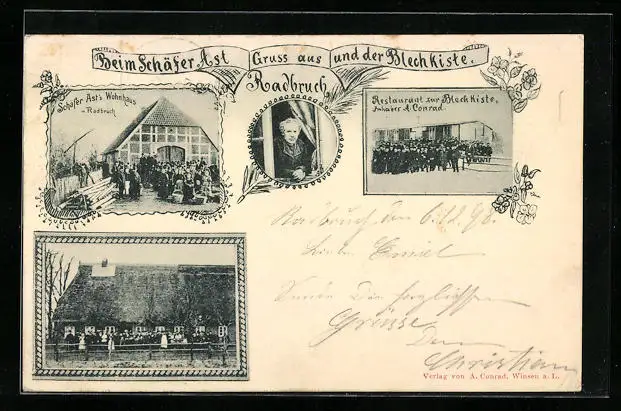 Beim Schäfer Ast Gruss aus und der Blechkiste.
Radbruch
Schäfer Ast's Wohnhaus
Radbruch
Restaurant zur Blechkiste,
Inhaber A. Conrad.
Radbruch den 6.12.98.
Lieber Emiel
Sende Dir herzlichsten
Grüsse
Dein
Christian
Verlag von A. Conrad, Winsen a. L.